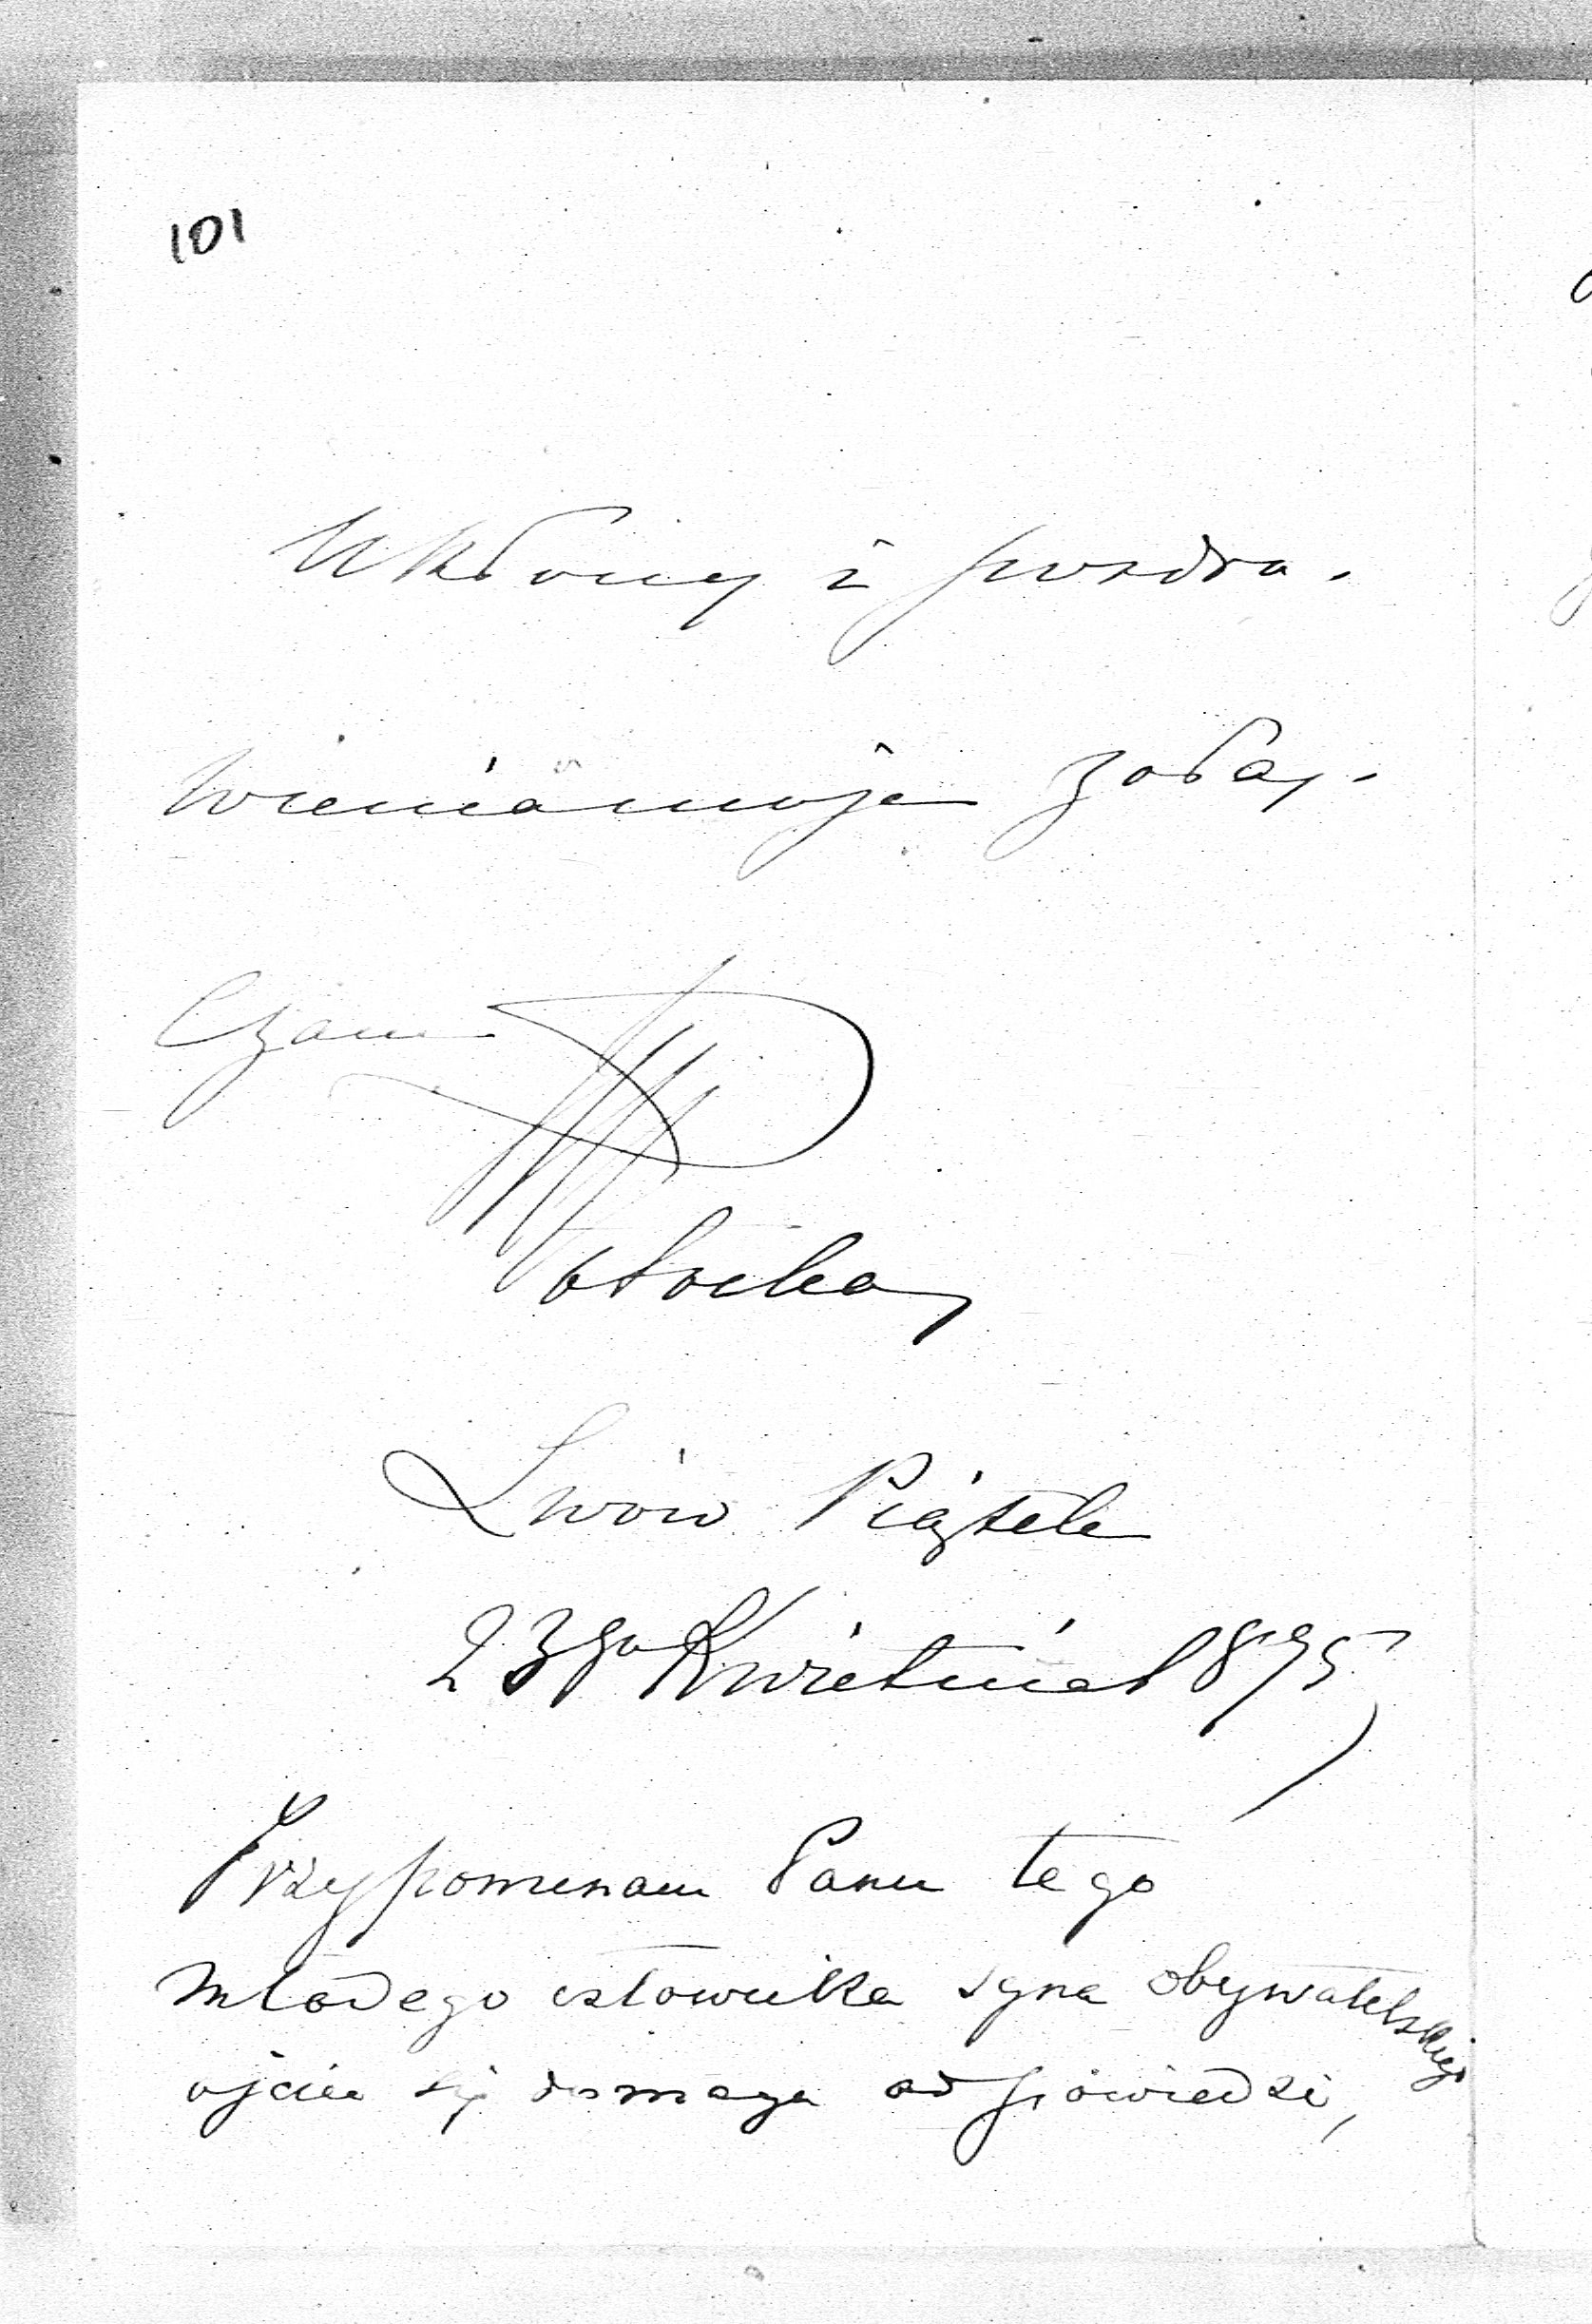 101
Ukłony i pozdra-
wieniá moje zołą-
czam
Potocka
Lwów Piątek
23go Kwietnia 1875
Przypominam Panu tego
młodego człowieka syna obywatelskiego
ojciec się domaga odpowiedzi,